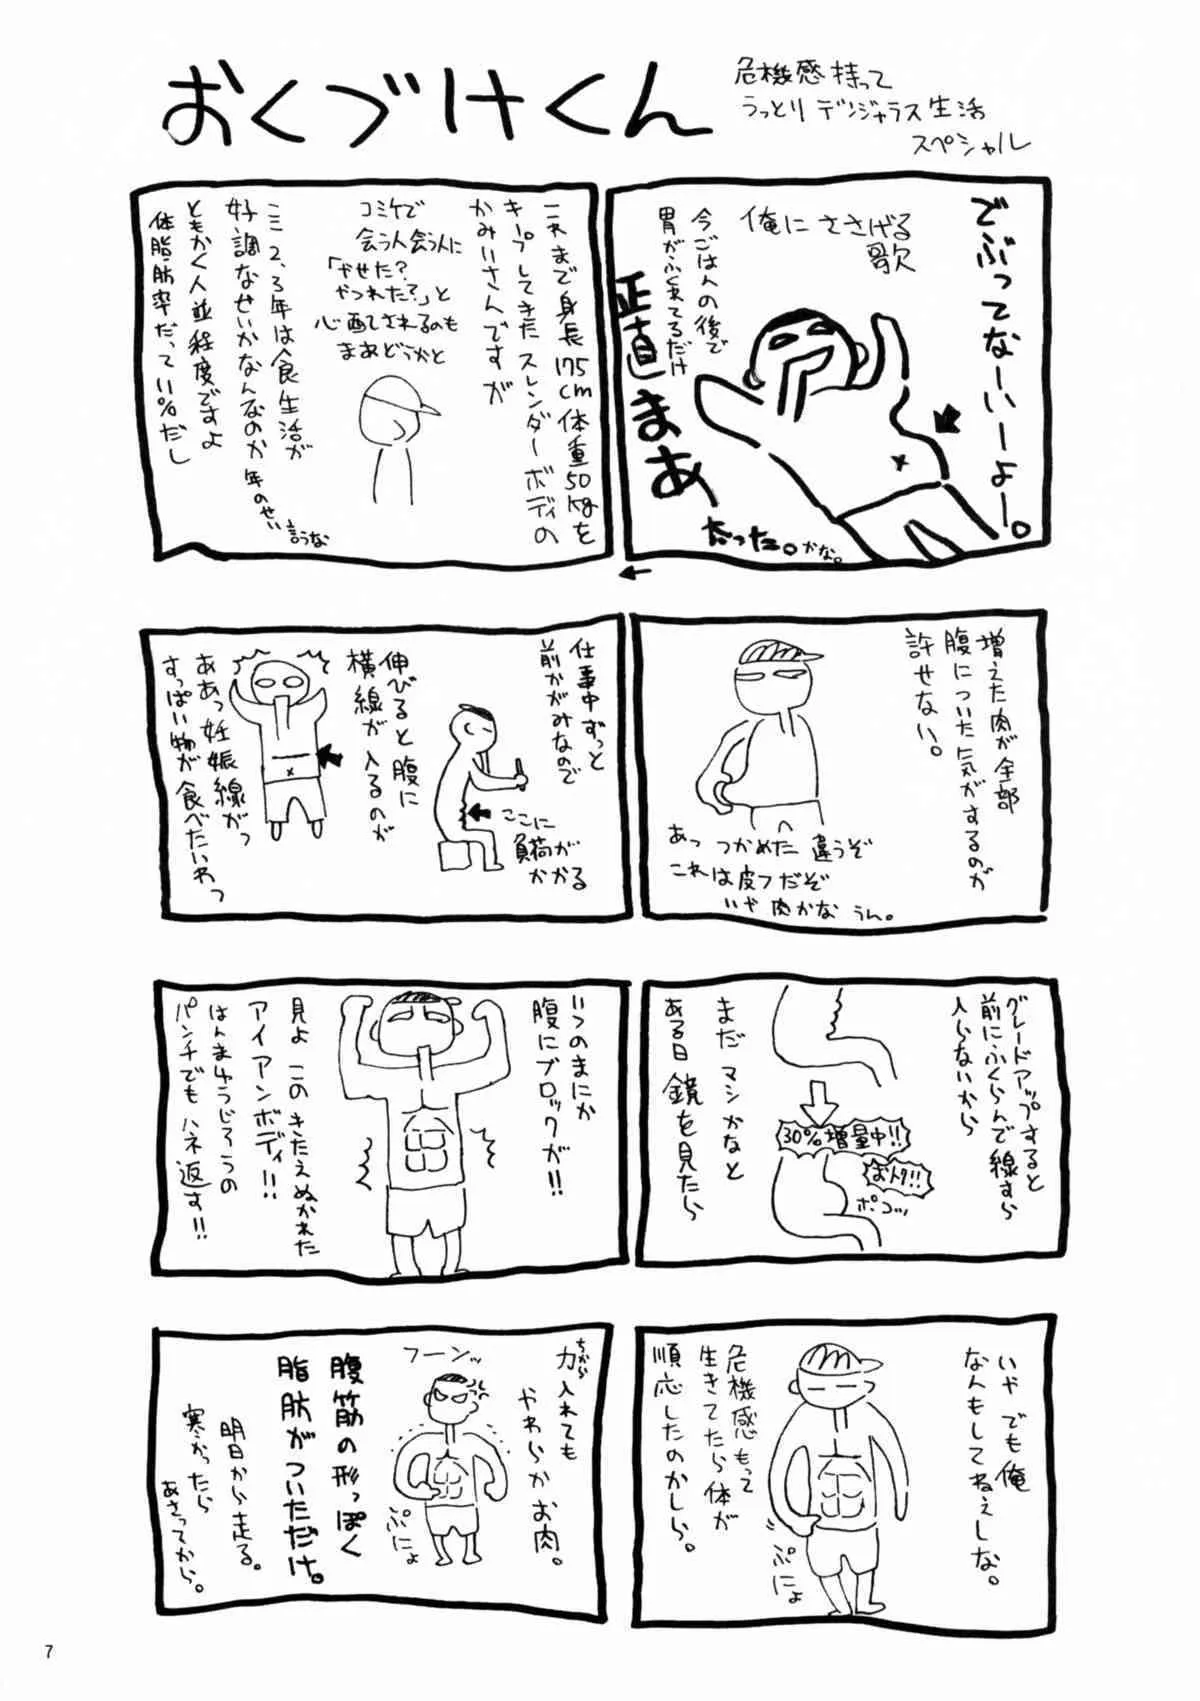 おくづけくん
危機感持って
うっとりデンジャラス生活
スペシャル
でぶってなーいーよー。
俺にささげる
歌
今ごはんの後で
胃がふくれてるだけ
正直まあ
太った。かな。
これまで身長175cm体重50kgを
キープしてきたスレンダーボディの
かみいさんですが
コミケで
会う人会う人に
「やせた?
やつれた?」と
心配されるのも
まあどうかと
ここ2、3年は食生活が
好調なせいかなんなのか
年のせい
言うな
ともかく人並程度ですよ
体脂肪率だって11%だし
増えた肉が全部
腹についた気がするのが
許せない。
あっ つかめた 違うぞ
これは皮フだぞ
いや 肉かな うん。
仕事中ずっと
前かがみなので
ここに
負荷が
かかる
伸びると腹に
横線が入るのが
ああっ妊娠線がっ
すっぱい物が食べたいわっ
グレードアップすると
前にふくらんで線すら
入らないから
30%増量中!!
おトク!!
ポコッ
まだマシかなと
ある日鏡を見たら
いつのまにか
腹にブロックが!!
見よ このきたえぬかれた
アイアンボディ!!
はんまゆうじろうの
パンチでもハネ返す!!
いや でも俺
なんもしてねぇしな。
ぷにょ
危機感もって
生きてたら体が
順応したのかしら。
力入れても
ちから
やわらかお肉。
フーンッ
ぷにょ
腹筋の形っぽく
脂肪がついただけ。
明日から走る。
寒かったら
あさってから。
7